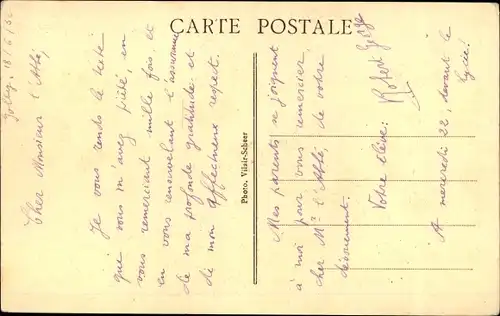 CARTE POSTALE
18/6/32
Cher Monsieur l'Abbé,
Je vous rends le texte
que vous m'avez prêté, en
vous remerciant mille fois et
en vous renouvelant l'assurance
de ma profonde gratitude et
de mon affectueux respect.
Photo. Vilair-Scheer
Mes parents se joignent
à moi pour vous remercier,
cher Mr l'Abbé, de votre
dévouement.
Votre élève:
Robert
A mercredi 22, devant le
lycée!